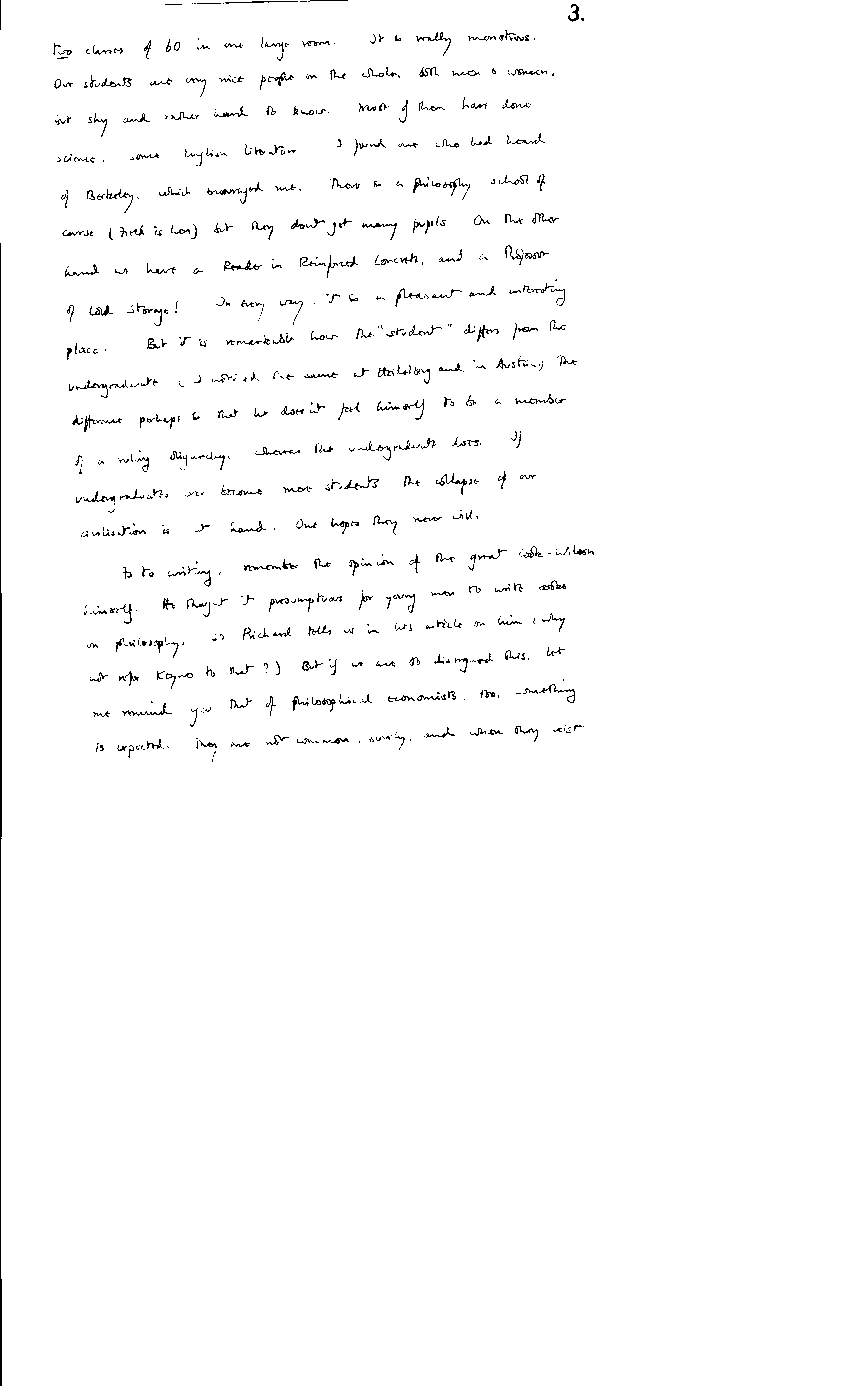 3.
two classes of 60 in one large room. It is really monstrous.
Our students are very nice people on the whole, both men & women,
but shy and rather hard to know. Most of them have done
science, some English literature. I found one who had heard
of Berkeley, which encouraged me. There is a philosophy school of
course ( is ) but they don't get many pupils. On the other
hand we have a Reader in Reinforced Concrete, and a Professor
of Cold Storage! In every way, it is a pleasant and interesting
place. But it is remarkable how the "student" differs from the
undergraduate (I noticed the same at Heidelberg and in Austria); the
difference perhaps is that he doesn't feel himself to be a member
of a ruling oligarchy, whereas the undergraduate does. If
undergraduates ever become mere students the collapse of our
civilisation is at hand. One hopes they never will.
As to writing, remember the opinion of the great Cook-Wilson
himself. He thought it presumptuous for young men to write books
on philosophy, so Prichard tells us in his article on him (why
not refer Keynes to that?) But if we are to disregard this, let
me remind you that of philosophical economists, too, something
is expected. They are not common, surely, and when they exist